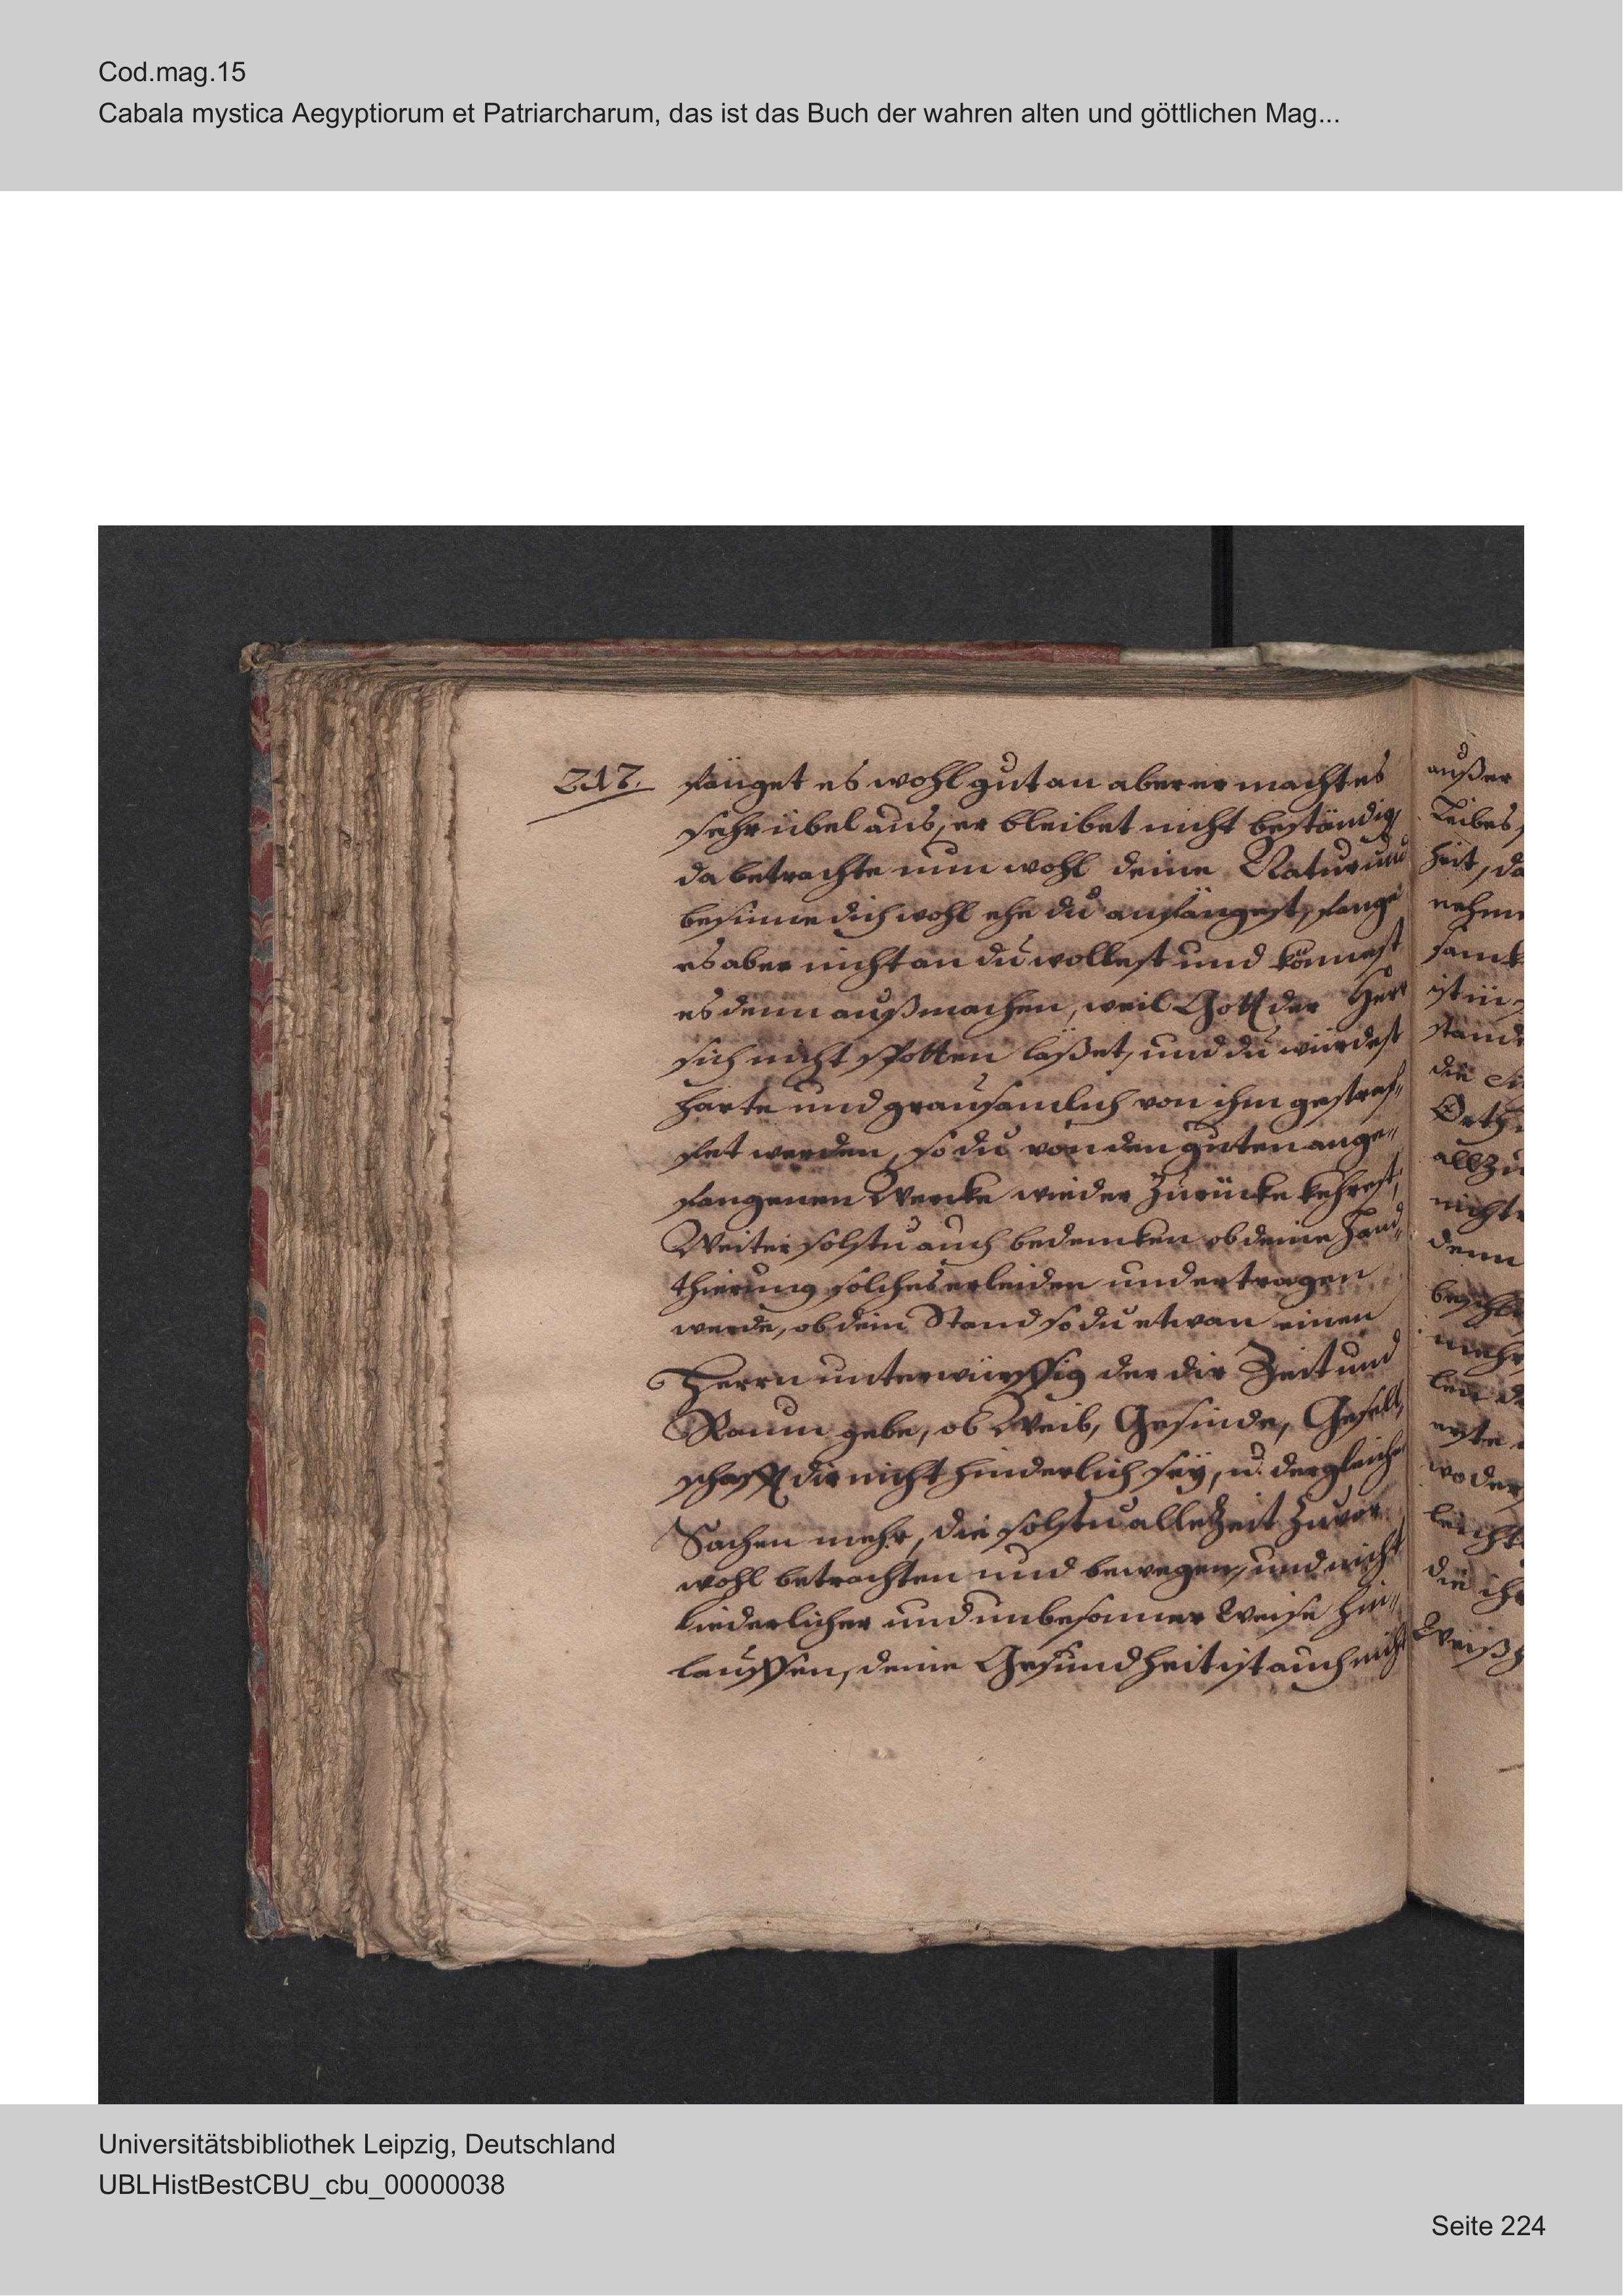 Cod.mag.15
Cabala mystica Aegyptiorum et Patriarcharum, das ist das Buch der wahren alten und göttlichen Mag...
217.
fänget es wohl gut an aber er macht es
sehr übel aus, er bleibet nicht beständig
da betrachte nun wohl deine Natur und
besinne dich wohl ehe du anfängest, fange
es aber nicht an du wollest und könnest
es denn außmachen, weil Gott der Herr
sich nicht spotten laßet, und du würdest
harte und grausamlich von ihm gestraf„
fet werden, so du von den guten ange„
fangenen Wercke wieder zurücke kehrest,
Weiter solstu auch bedencken ob deine Hand„
thierung solches erleiden und ertragen
werde, ob dein Stand so du etwan einen
Herrn unterwürffig der dir Zeit und
Raum gebe, ob Weib, Gesinde, Gesell„
schafft dir nicht hinderlich seÿ, u. dergleichen
Sachen mehr, die solstu alle Zeit zuvor
wohl betrachten und bewegen, und nicht
liederlicher und unbesonner Weise hin„
lauffen, deine Gesundheit ist auch nicht
außer
Leibes,
heit, da
nehm
samk
ist in
stande
die
Orth
allzu
nicht
denn
beschl
mehr
len
erste
wo der
leicht
die ihr
Weißh
Universitätsbibliothek Leipzig, Deutschland
UBLHistBestCBU_cbu_00000038
Seite 224